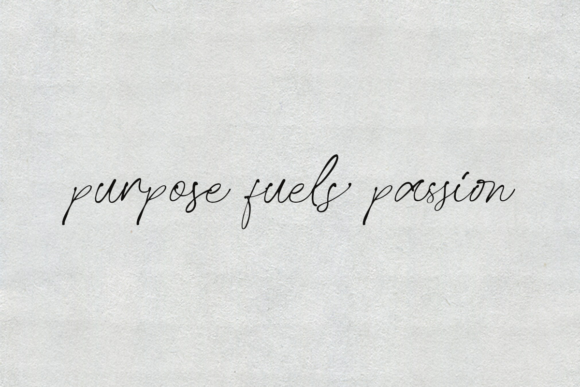 purpose fuels passion